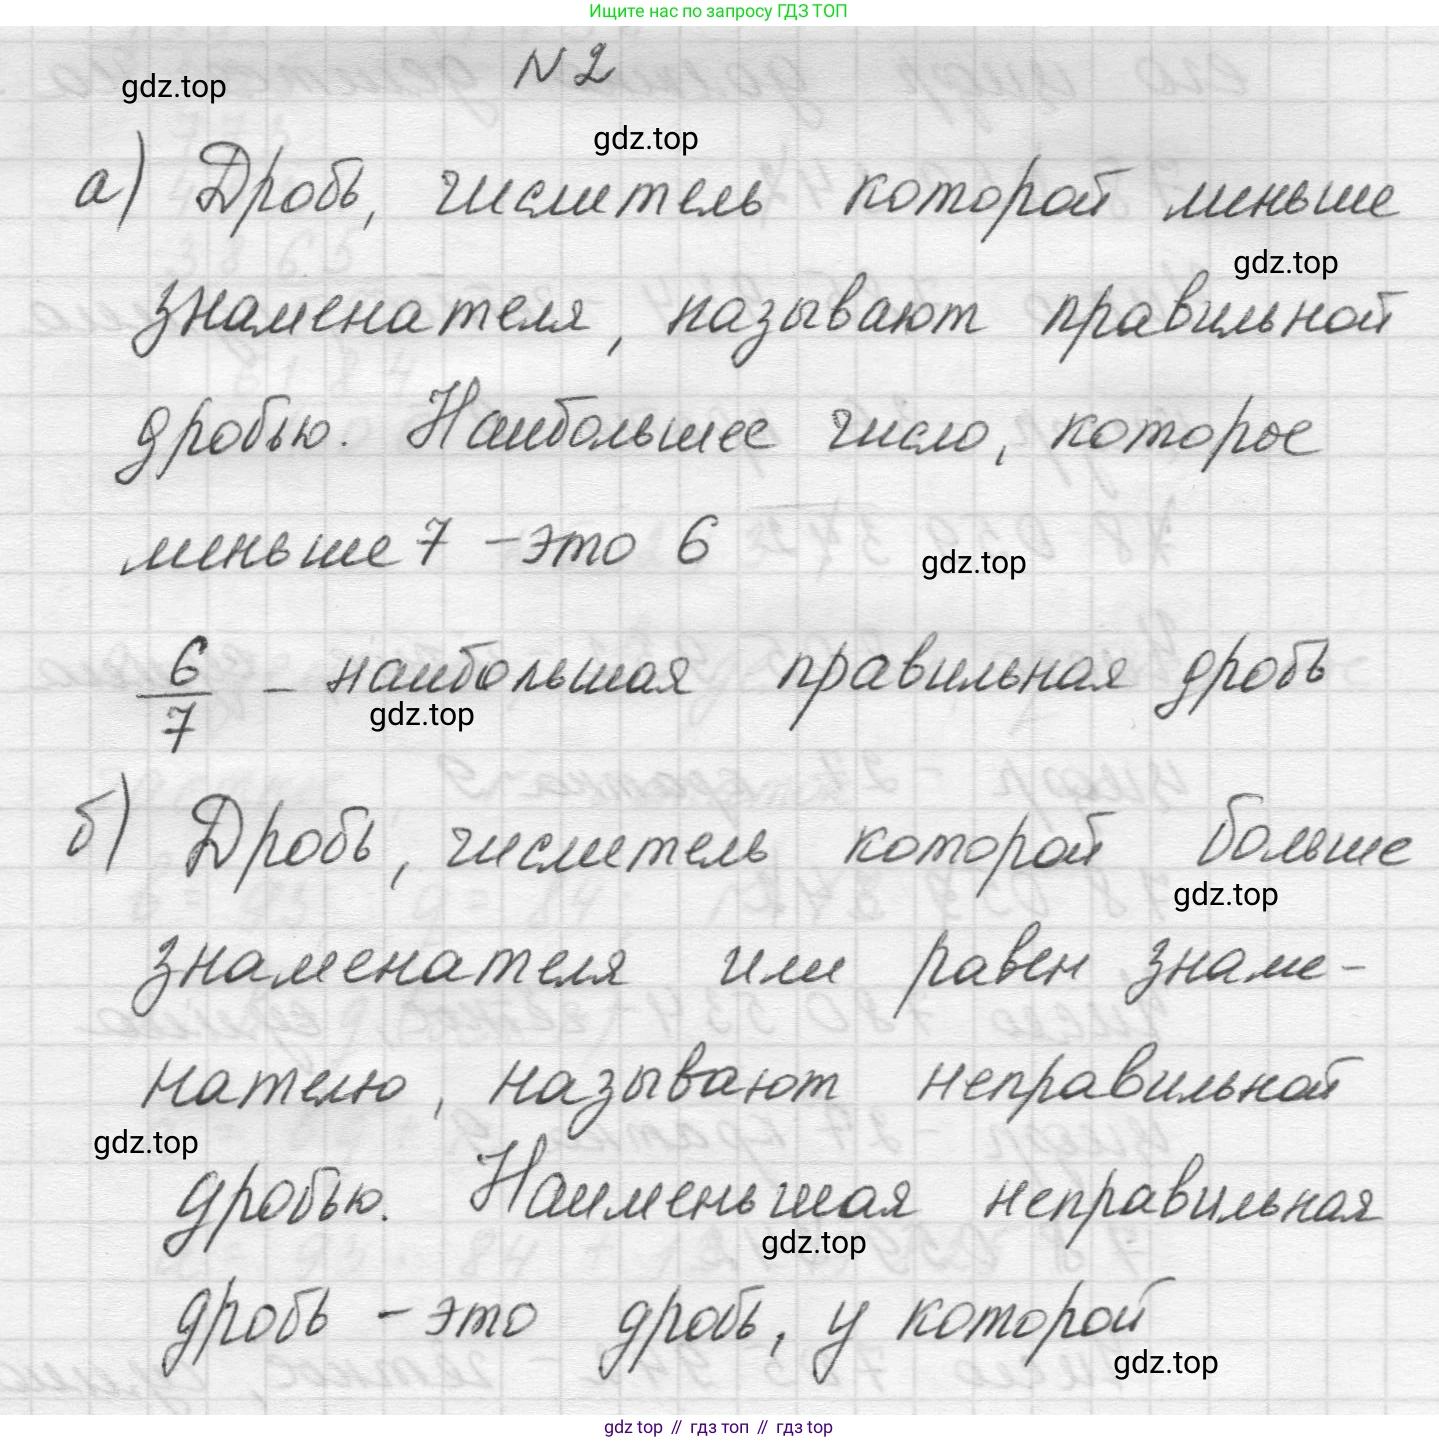 Ищите нас по запросу ГДЗ ТОП
N 2
gdz.top
gdz.top
а) Дробь, числитель которой меньше
gdz.top
знаменателя, называют правильной
дробью. Наибольшее число, которое
меньше 7 - это 6
gdz.top
6/7 - наибольшая правильная дробь
gdz.top
б) Дробь, числитель которой больше
gdz.top
знаменателя или равен знаме-
нателю, называют неправильной
gdz.top
дробью. Наименьшая неправильная
gdz.top
дробь - это дробь, у которой
gdz.top
gdz top // гдз топ // гдз top